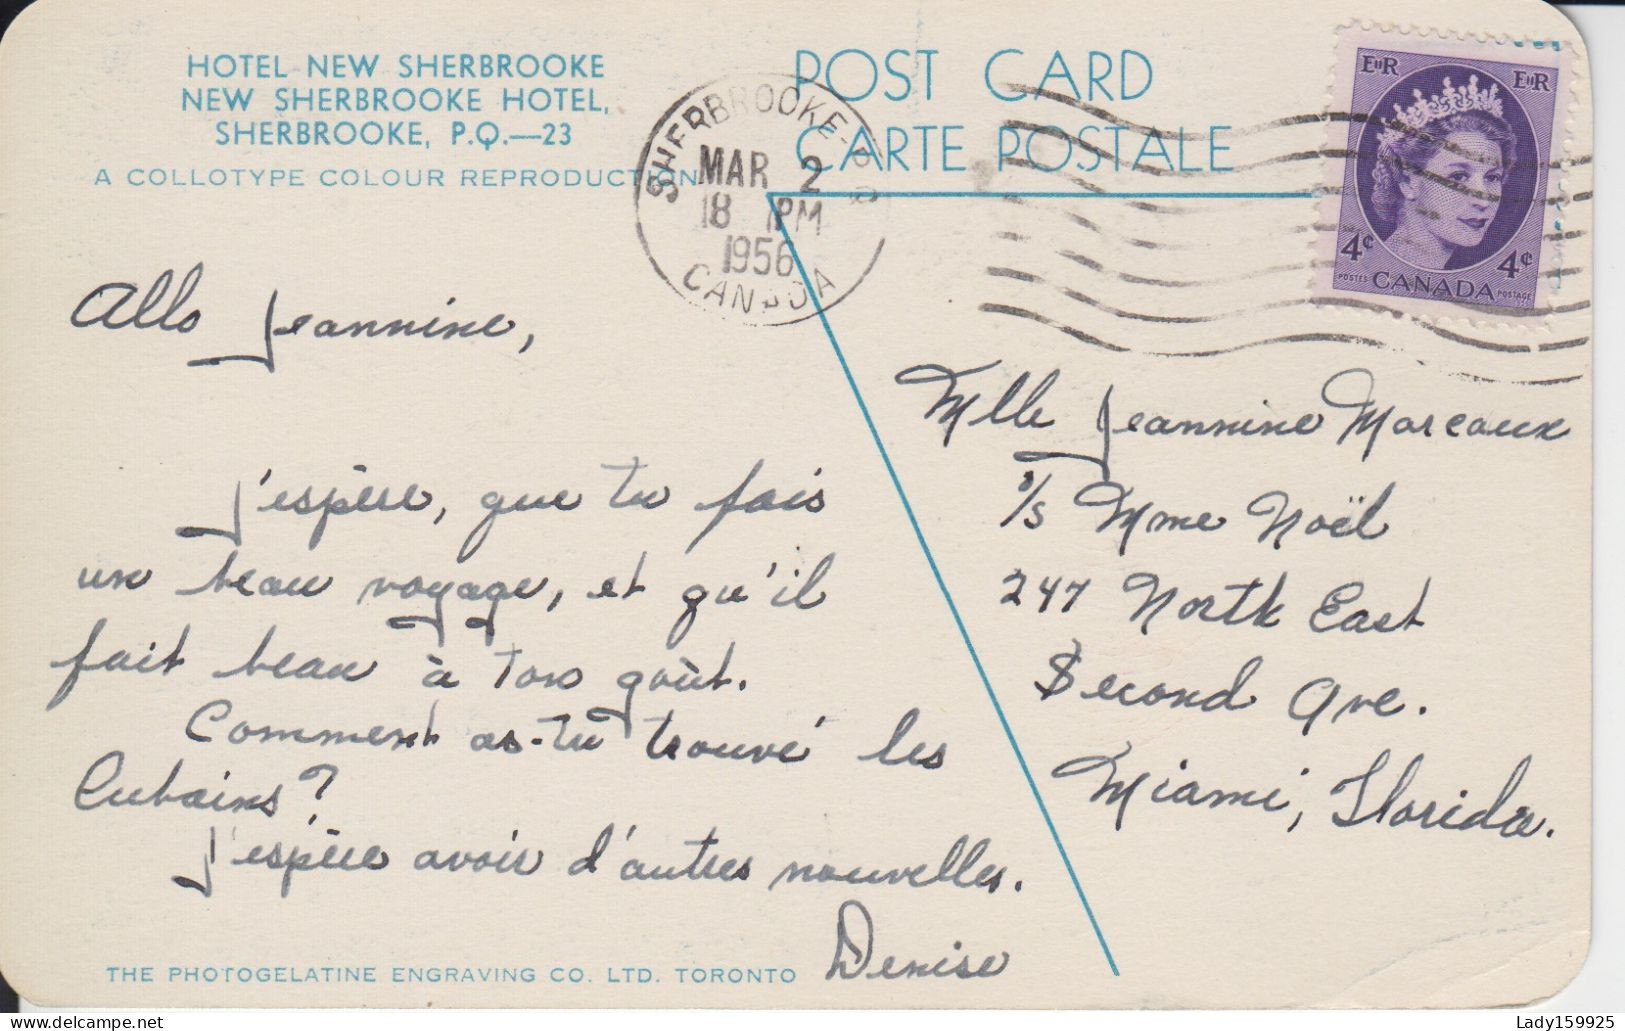 HOTEL NEW SHERBROOKE
NEW SHERBROOKE HOTEL,
SHERBROOKE, P.Q.—23
A COLLOTYPE COLOUR REPRODUCTION
POST CARD
CARTE POSTALE
SHERBROOKE-P Q
MAR 2
18 PM
1956
CANADA
EIIR EIIR
4¢ 4¢
POSTES CANADA POSTAGE
Allo Jeannine,
J'espère, que tu fais
un beau voyage, et qu'il
fait beau à ton goût.
Comment as-tu trouvé les
Cubains?
J'espère avoir d'autres nouvelles.
Denise
Mlle Jeannine Marcoux
a/s Mme Noël
247 North East
Second Ave.
Miami, Florida.
THE PHOTOGELATINE ENGRAVING CO. LTD. TORONTO
Lady159925